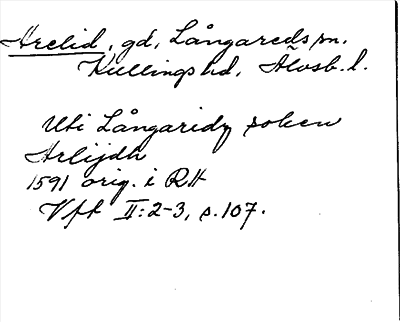 Arelid, gd, Långareds sn.
Kullings hd, Älvsb. l.
Uti Långaridz soken
Arlijdh
1591 orig. i RA
Vfk II: 2-3, s. 107.